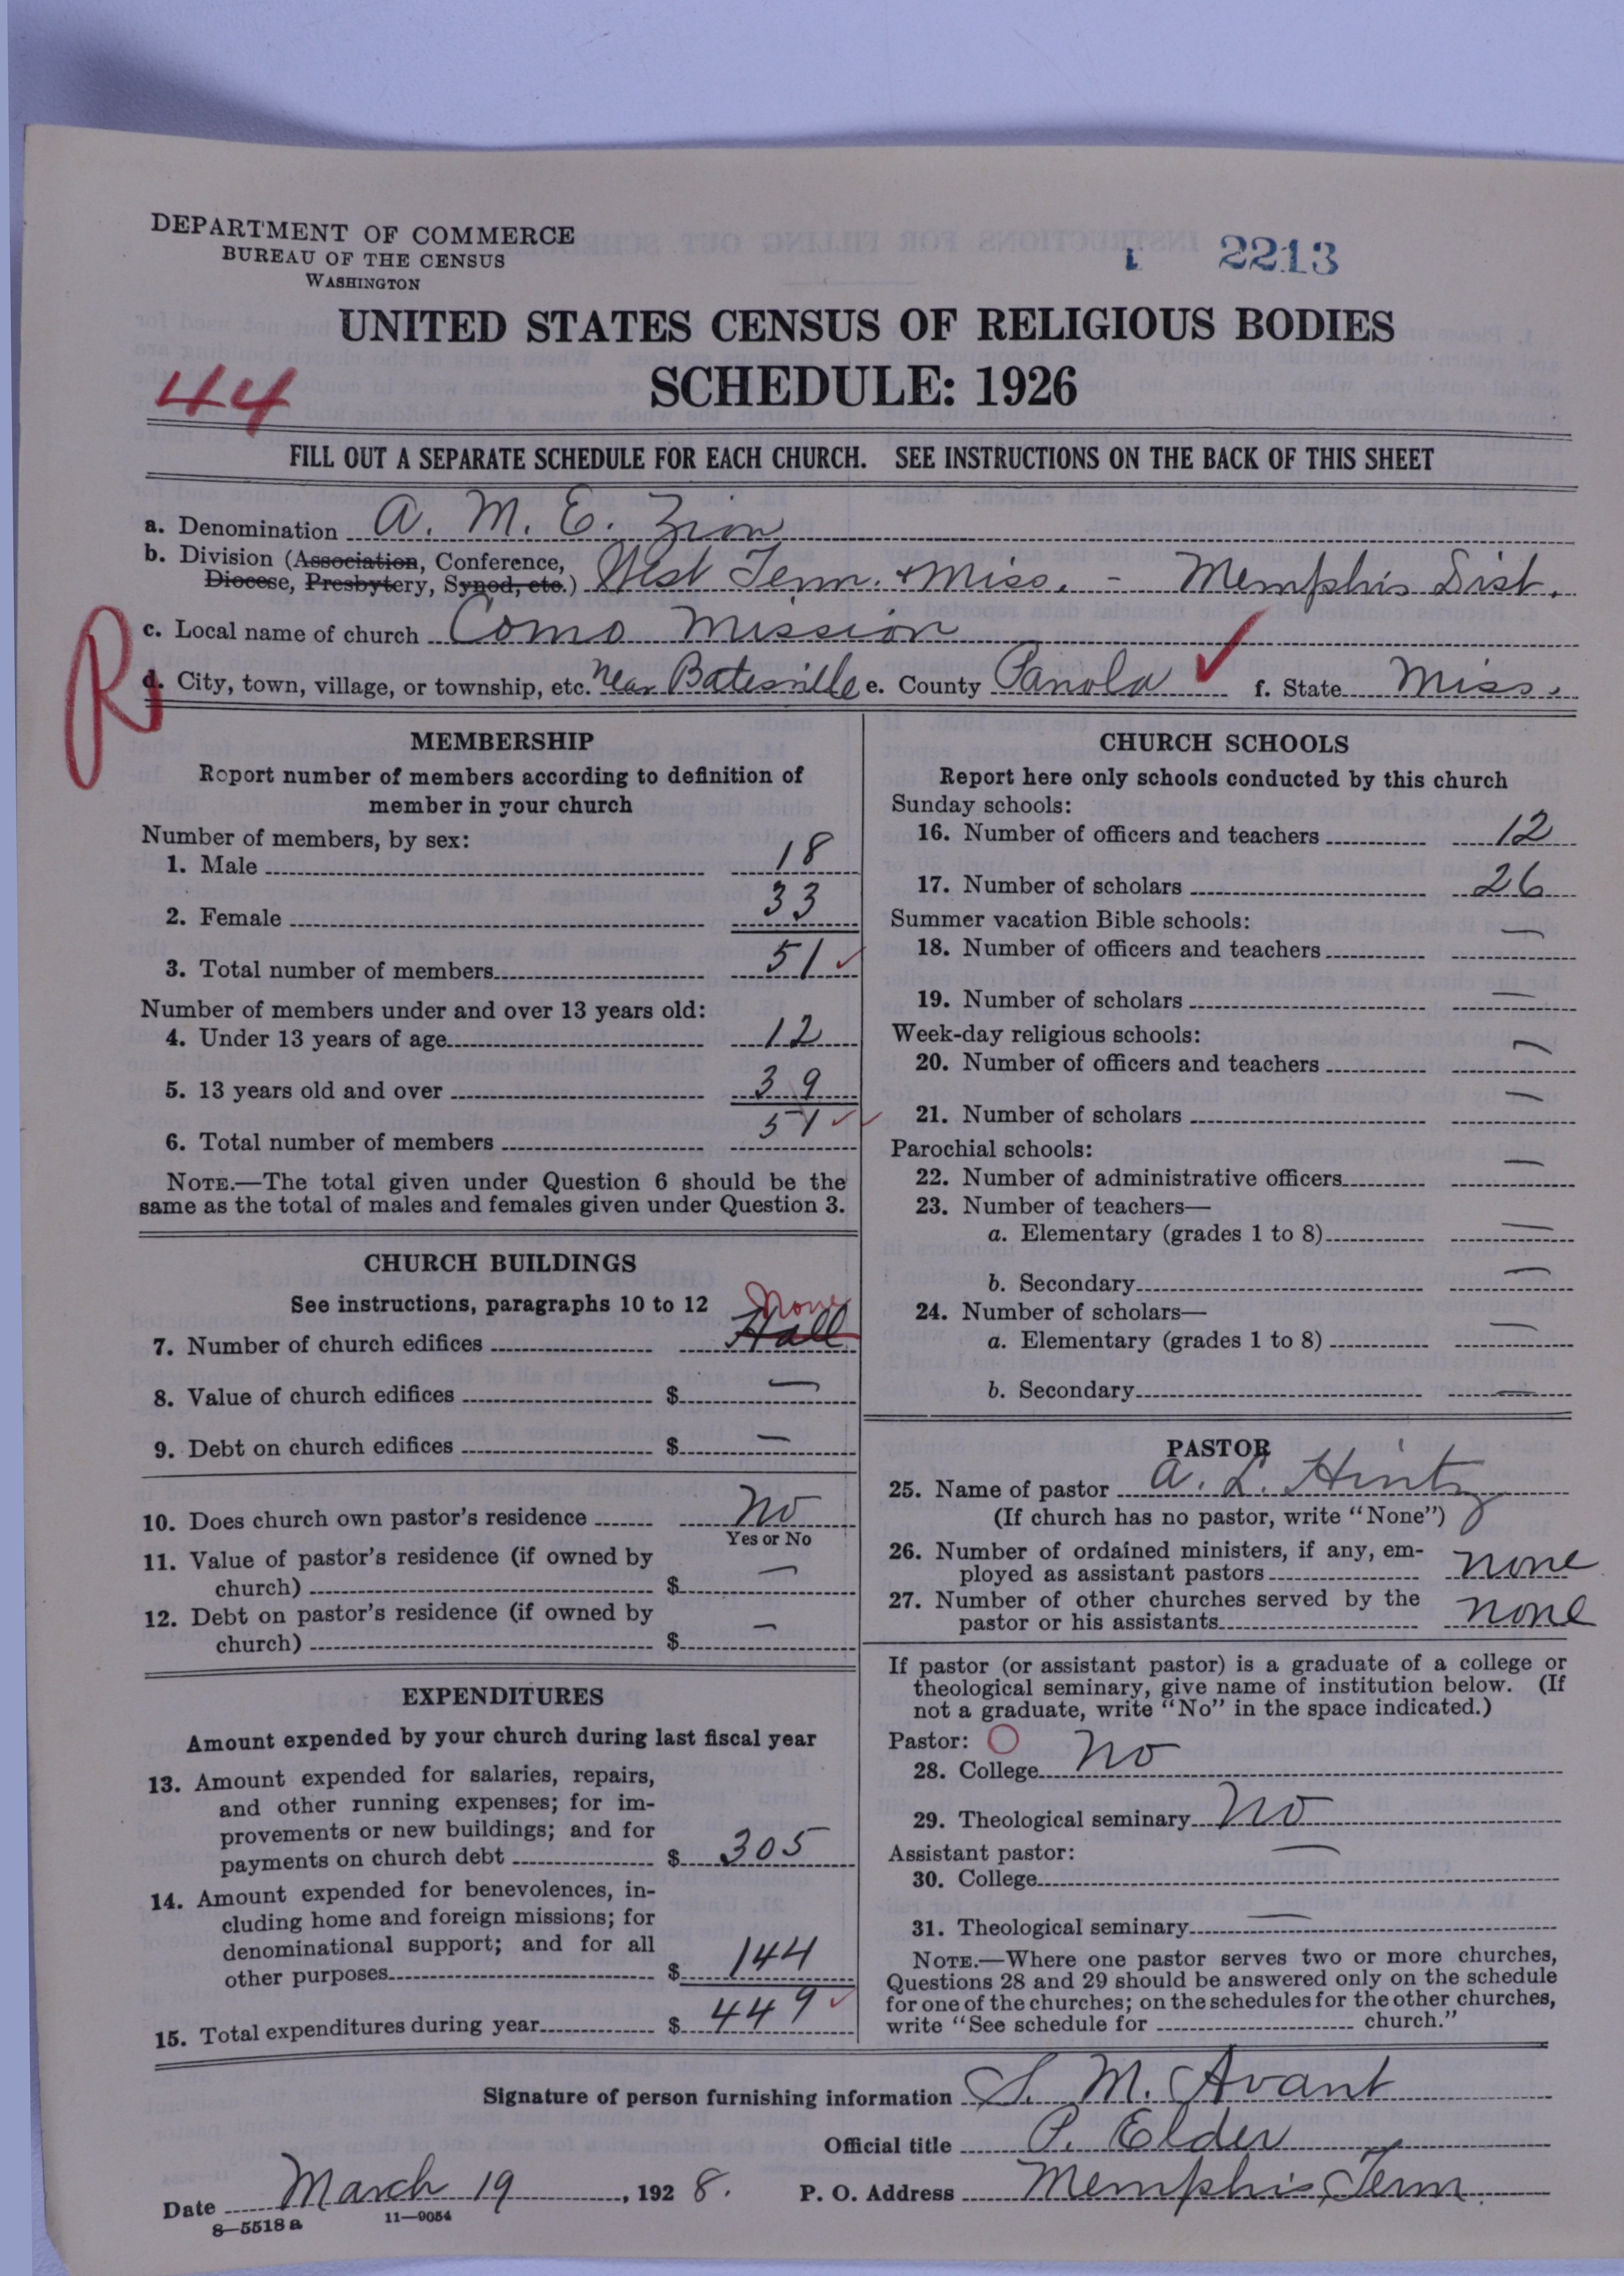 DEPARTMENT OF COMMERCE
BUREAU OF THE CENSUS
WASHINGTON
1 2213
UNITED STATES CENSUS OF RELIGIOUS BODIES
SCHEDULE: 1926
44
FILL OUT A SEPARATE SCHEDULE FOR EACH CHURCH. SEE INSTRUCTIONS ON THE BACK OF THIS SHEET
a. Denomination A. M. E. Zion
b. Division (Association, Conference,
Diocese, Presbytery, Synod, etc.) West Tenn. + Miss. - Memphis Dist.
c. Local name of church Como Mission
R
d. City, town, village, or township, etc. Near Batesville e. County Panola f. State Miss.
MEMBERSHIP
Report number of members according to definition of
member in your church
Number of members, by sex:
1. Male 18
2. Female 33
3. Total number of members 51
Number of members under and over 13 years old:
4. Under 13 years of age 12
5. 13 years old and over 39
6. Total number of members 51
NOTE.—The total given under Question 6 should be the
same as the total of males and females given under Question 3.
CHURCH BUILDINGS
See instructions, paragraphs 10 to 12
None
7. Number of church edifices Hall
8. Value of church edifices $ —
9. Debt on church edifices $ —
10. Does church own pastor's residence No
Yes or No
11. Value of pastor's residence (if owned by
church) $ —
12. Debt on pastor's residence (if owned by
church) $ —
EXPENDITURES
Amount expended by your church during last fiscal year
13. Amount expended for salaries, repairs,
and other running expenses; for im-
provements or new buildings; and for
payments on church debt $ 305
14. Amount expended for benevolences, in-
cluding home and foreign missions; for
denominational support; and for all
other purposes $ 144
15. Total expenditures during year $ 449
CHURCH SCHOOLS
Report here only schools conducted by this church
Sunday schools:
16. Number of officers and teachers 12
17. Number of scholars 26
Summer vacation Bible schools:
18. Number of officers and teachers —
19. Number of scholars —
Week-day religious schools:
20. Number of officers and teachers —
21. Number of scholars —
Parochial schools:
22. Number of administrative officers —
23. Number of teachers—
a. Elementary (grades 1 to 8) —
b. Secondary —
24. Number of scholars—
a. Elementary (grades 1 to 8) —
b. Secondary —
PASTOR
25. Name of pastor A. L. Hintz
(If church has no pastor, write "None")
26. Number of ordained ministers, if any, em-
ployed as assistant pastors none
27. Number of other churches served by the
pastor or his assistants none
If pastor (or assistant pastor) is a graduate of a college or
theological seminary, give name of institution below. (If
not a graduate, write "No" in the space indicated.)
Pastor:
28. College No
29. Theological seminary No
Assistant pastor:
30. College —
31. Theological seminary —
NOTE.—Where one pastor serves two or more churches,
Questions 28 and 29 should be answered only on the schedule
for one of the churches; on the schedules for the other churches,
write "See schedule for church."
Signature of person furnishing information S. M. Avant
Official title P. Elder
Date March 19, 1928. P. O. Address Memphis, Tenn.
8—5518a 11—9054